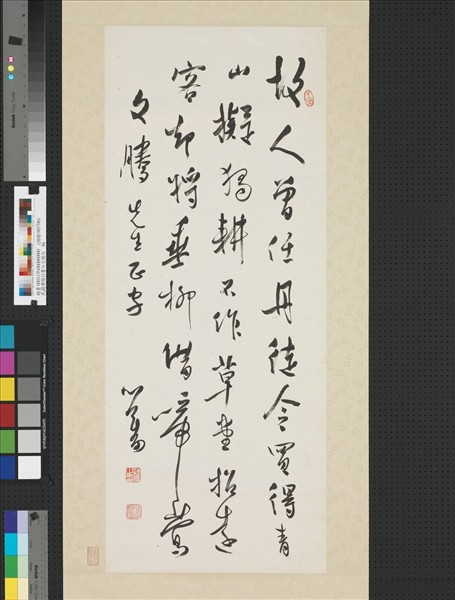 故人曾任丹徒令買得青
山擬獨耕不作草堂招遠
客却將垂柳借啼鶯
文騰先生正字
心畬